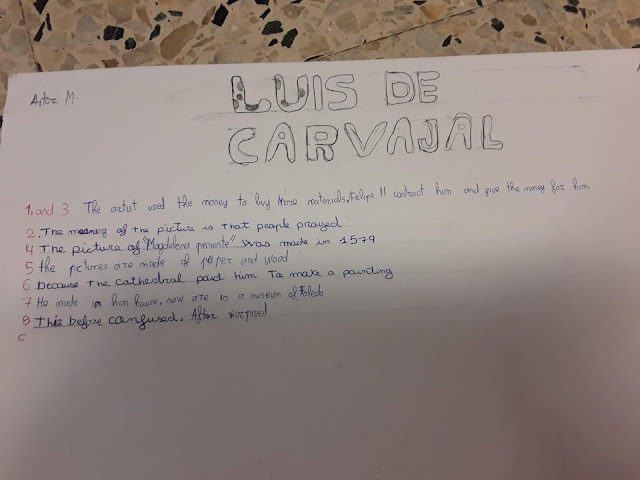 Aitor M.
LUIS DE
CARVAJAL
1. and 3 The artist used the money to buy more materials, Felipe II contract him and give the money for him
2. The meaning of the picture is that people prayed
4 The picture of "Magdalena penitente" was made in 1579
5 the pictures are made of paper and wood
6. because the cathedral paid him To make a painting
7 He made in him house, now are in a museum of Toledo
8 This before confused. After surprised
C